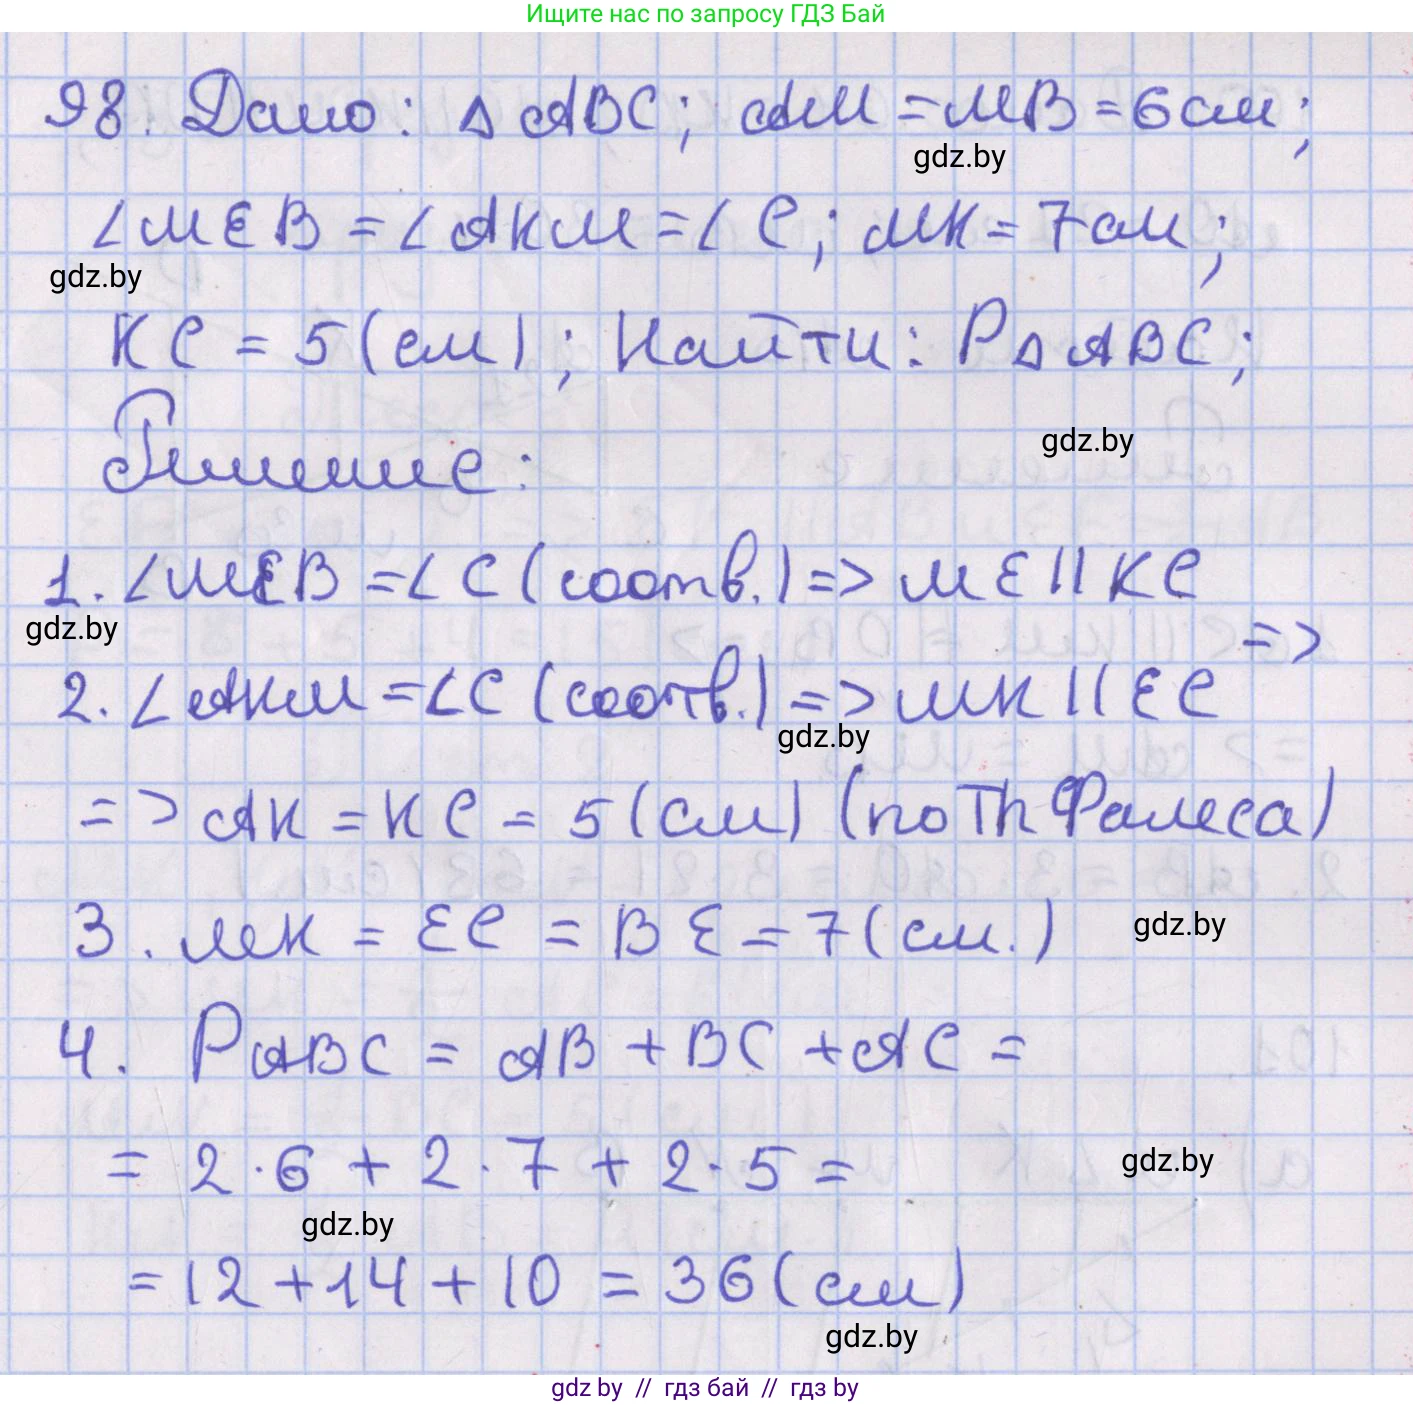 Ищите нас по запросу ГДЗ Бай
98. Дано: △ ABC; AM = MB = 6 см;
gdz.by
∠MEB = ∠AKM = ∠C; MK = 7 см;
gdz.by
KC = 5 (см); Найти: P△ABC;
gdz.by
Решение:
1. ∠MEB = ∠C (соотв.) => ME || KC
gdz.by
=>
2. ∠AKM = ∠C (соотв.) => MK || EC
gdz.by
=> AK = KC = 5 (см) (по Th Фалеса)
3. MK = EC = BE = 7 (см.)
gdz.by
4. PABC = AB + BC + AC =
= 2·6 + 2·7 + 2·5 =
gdz.by
gdz.by
= 12 + 14 + 10 = 36 (см)
gdz.by
gdz by // гдз бай // гдз by